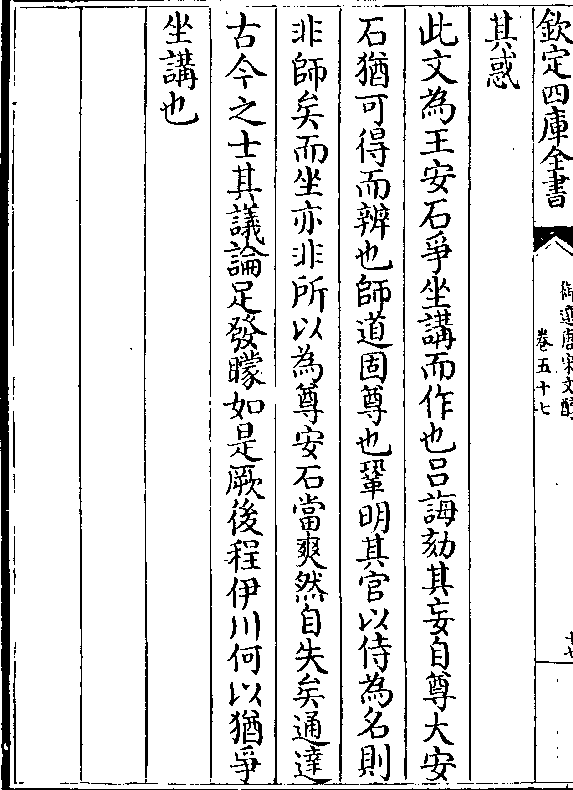 欽定四庫全書
御選唐宋文醇
卷五十七
十七
其惑
此文為王安石爭坐講而作也呂誨劾其妄自尊大安
石猶可得而辨也師道固尊也鞏明其官以侍為名則
非師矣而坐亦非所以為尊安石當爽然自失矣通達
古今之士其議論足發矇如是厥後程伊川何以猶爭
坐講也